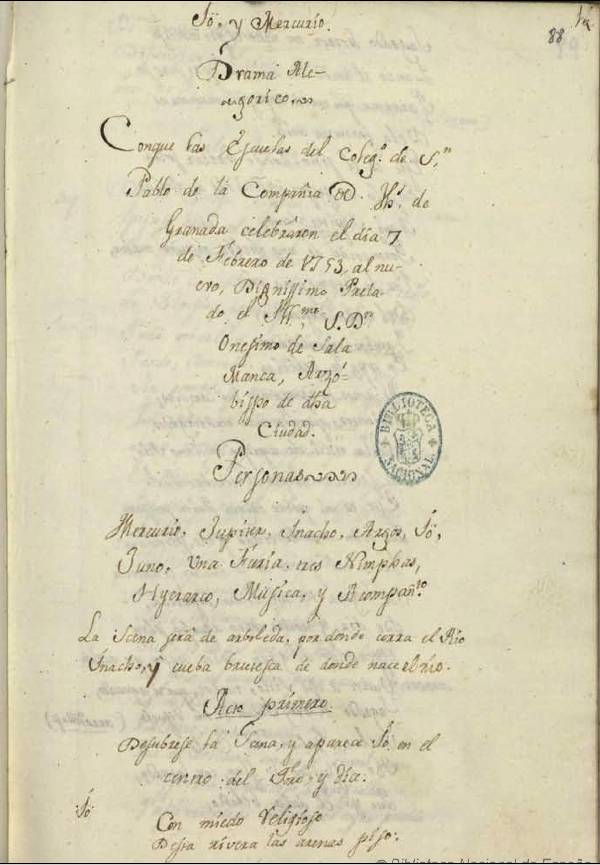 Jö, y Mercurio.
88
Drama Ale-
gorico
Conque las Escuelas del Coleg.º de S.n
Pablo de la Compañia de Jhs. de
Granada celebraron el dia 7
de Febrero de 1753, al nu-
evo, Dignissimo Prela-
do el Yll.mo S. D.n
Onesimo de Sala
Manca, Arzo-
bispo de dha
Ciudad.
BIBLIOTECA NACIONAL
Personas
Mercurio, Jupiter, Ynacho, Argos, Jö,
Juno, Una Furia, tres Nimphas,
Hyerarco, Musica, y Acompañ.to
La Scena será de arboleda, por donde corra el Rio
Ynacho, y cueba brutesca de donde nace el rio.
Acto primero
Descubrese la Scena, y aparece Jö, en el
centro del Foro y dia.
Jö Con miedo Religioso
Desta rivera las arenas piso:
© Biblioteca Nacional de España